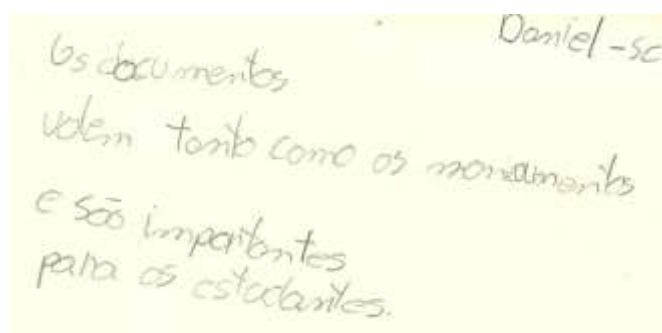 Daniel - 5C
Os documentos
valem tanto como os monumentos
e são importantes
para os estudantes.